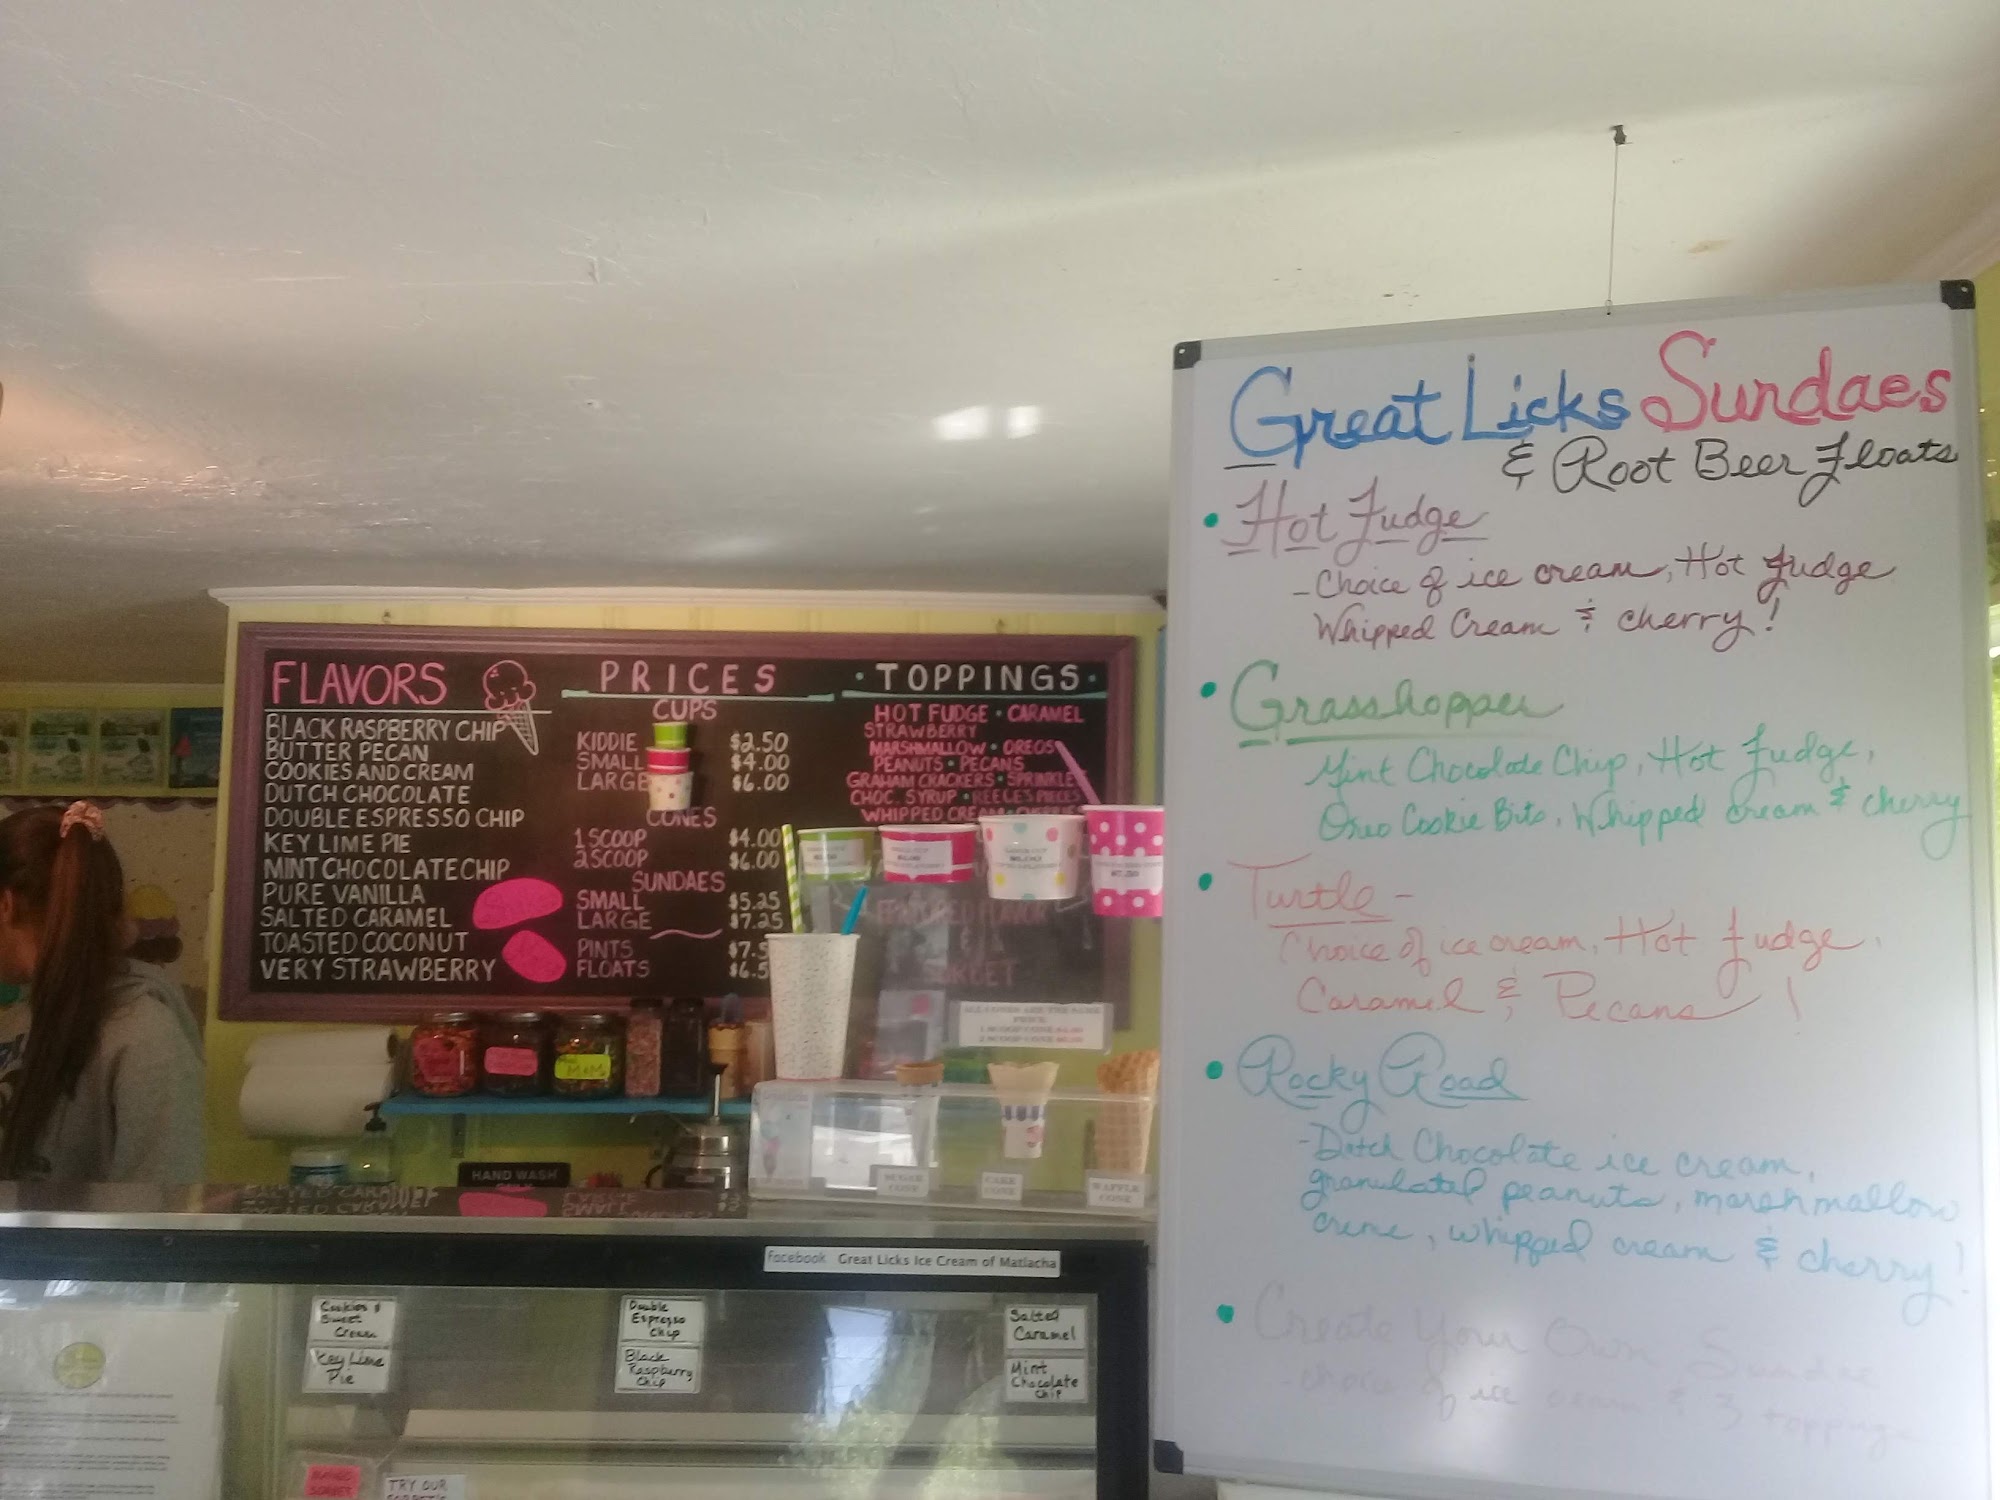 FLAVORS
BLACK RASPBERRY CHIP
BUTTER PECAN
COOKIES AND CREAM
DUTCH CHOCOLATE
DOUBLE ESPRESSO CHIP
KEY LIME PIE
MINT CHOCOLATE CHIP
PURE VANILLA
SALTED CARAMEL
TOASTED COCONUT
VERY STRAWBERRY
PRICES
CUPS
KIDDIE $2.50
SMALL $4.00
LARGE $6.00
CONES
1 SCOOP $4.00
2 SCOOP $6.00
SUNDAES
SMALL $5.25
LARGE $7.25
PINTS $7.5
FLOATS $6.5
• TOPPINGS •
HOT FUDGE • CARAMEL
STRAWBERRY
MARSHMALLOW • OREOS
PEANUTS • PECANS
GRAHAM CRACKERS • SPRINKLE
CHOC. SYRUP • REECE'S PIECES
WHIPPED CREAM
FEATURED FLAVOR
&
SORBET
ALL CONES ARE THE SAME
PRICE
1 SCOOP CONE $4.00
2 SCOOP CONE $6.00
M&M
HAND WASH
ONLY
SUGAR
CONE
CAKE
CONE
WAFFLE
CONE
Facebook Great Licks Ice Cream of Matlacha
Cookies &
Sweet
Cream
Key Lime
Pie
Double
Espresso
Chip
Black
Raspberry
Chip
Salted
Caramel
Mint
Chocolate
Chip
MANGO
SORBET
TRY OUR
Great Licks Sundaes
& Root Beer Floats
• Hot Fudge
- Choice of ice cream, Hot Fudge
Whipped Cream & cherry!
• Grasshopper
Mint Chocolate Chip, Hot Fudge,
Oreo Cookie Bits, Whipped cream & cherry
• Turtle -
Choice of ice cream, Hot fudge,
Caramel & Pecans!
• Rocky Road
- Dutch Chocolate ice cream,
granulated peanuts, marshmallow
creme, whipped cream & cherry!
• Create Your Own Sundae
- choice of ice cream & 3 toppings